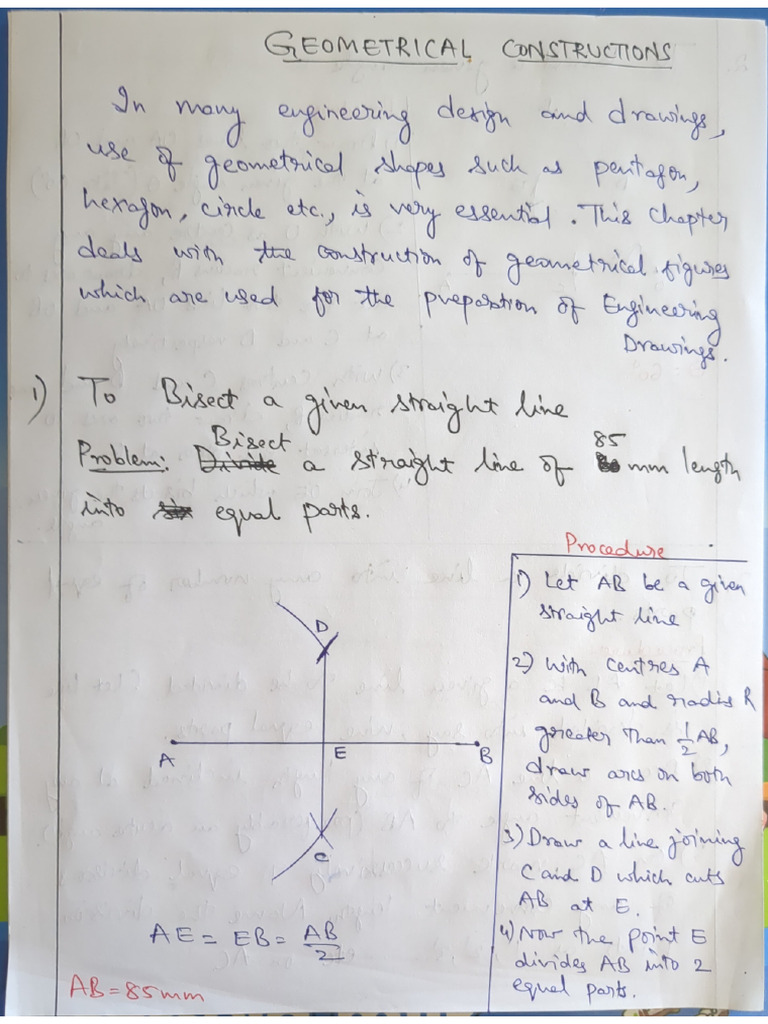 GEOMETRICAL CONSTRUCTIONS
In many engineering design and drawings,
use of geometrical shapes such as pentagon,
hexagon, circle etc., is very essential. This chapter
deals with the construction of geometrical figures
which are used for the preparation of Engineering
Drawings.
1) To Bisect a given straight line
Bisect 85
Problem: Divide a straight line of mm length
into six equal parts.
Procedure
1) Let AB be a given
straight line
2) With centres A
and B and radius R
greater than 1/2 AB,
draw arcs on both
sides of AB.
3) Draw a line joining
C and D which cuts
AB at E.
4) Now the point E
divides AB into 2
equal parts.
D
A E B
C
AE = EB = AB/2
AB = 85mm